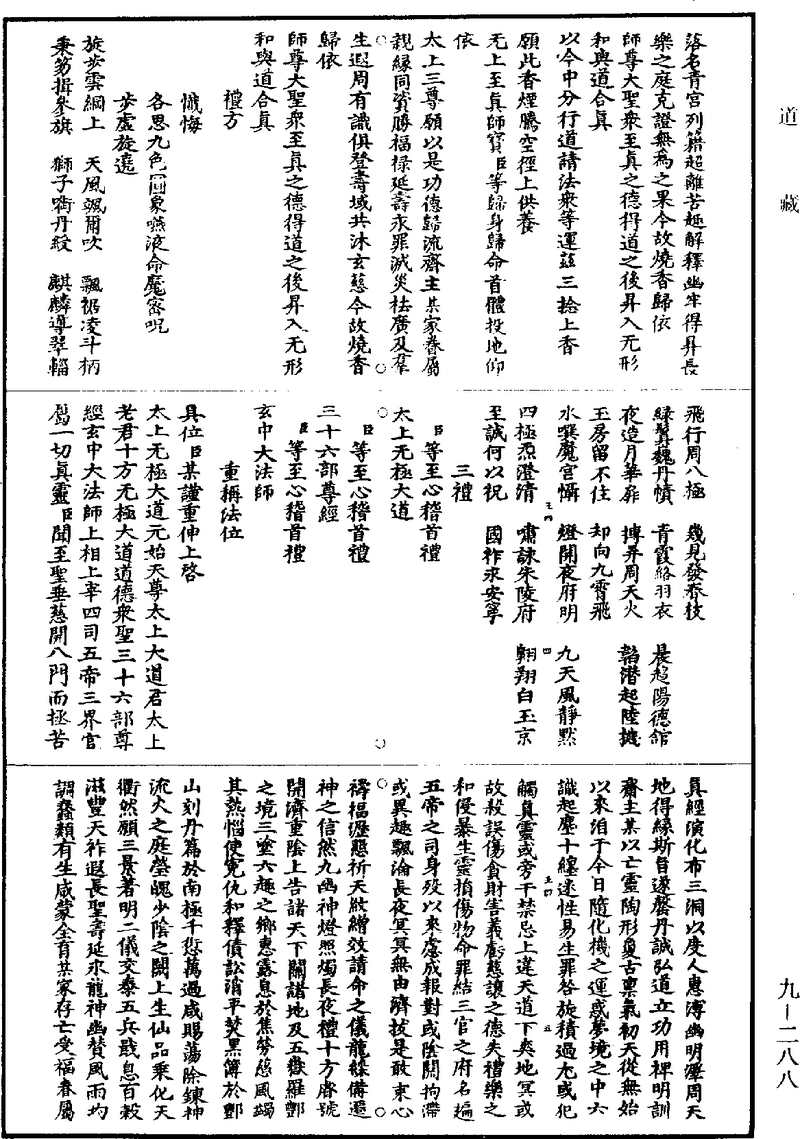 道藏
落名青宮列籍超離苦趣解釋幽牢得昇長
樂之庭克證無為之果今故燒香歸依
師尊大聖衆至真之德得道之後昇入无形
和與道合真
以今中分行道請法衆等運茲三捻上香
願此香煙騰空徑上供養
无上至真師寶臣等歸身歸命首體投地仰
依
太上三尊願以是功德歸流齋主某家眷屬
親緣同資勝福祿延壽永罪滅災祛廣及羣
生遐周有識俱登壽域共沐玄慈今故燒香
歸依
師尊大聖衆至真之德得道之後昇入无形
和與道合真
禮方
懺悔
各思九色圓象嚥液命魔密呪
步虛旋遶
旋步雲綱上 天風颯爾吹 飄裾凌斗柄
秉笏揖參旗 獅子嚼丹綬 麒麟導翠輜
飛行周八極 幾見發春枝
綠鬢巍丹幘 青霞絡羽衣 晨趨陽德館
夜造月華扉 摶弄周天火 韜潛起陸機
玉房留不住 却向九霄飛
水噀魔宮懾 燈開夜府明 九天風靜默
四極炁澄清 嘯詠朱陵府 翱翔白玉京
至誠何以祝 國祚永安寧
三禮
臣等至心稽首禮
太上无極大道
臣等至心稽首禮
三十六部尊經
臣等至心稽首禮
玄中大法師
重稱法位
具位臣某謹重伸上啓
太上无極大道元始天尊太上大道君太上
老君十方无極大道道德衆聖三十六部尊
經玄中大法師上相上宰四司五帝三界官
屬一切真靈臣聞至聖垂慈開八門而拯苦
真經演化布三洞以度人惠溥幽明澤周天
地得緣斯旨遂罄丹誠弘道立功用裨明訓
齋主某以亡靈陶形夐古稟氣初天從無始
以來洎于今日隨化機之運惑夢境之中六
識起塵十纏迷性易生罪咎旋積過尤或犯
觸真靈或旁干禁忌上違天道下爽地冥或
故殺誤傷貪財害義虧慈讓之德失禮樂之
和侵暴生靈損傷物命罪結三官之府名編
五帝之司身歿以來慮成報對或陰關拘滯
或異趣飄淪長夜冥冥無由濟拔是敢束心
禱福瀝懇祈天紋繒效請命之儀龍綵備還
神之信然九幽神燈照燭長夜禮十方尊號
開濟重陰上告諸天下關諸地及五嶽羅酆
之境三塗六趣之鄉惠露息於焦勞慈風蠲
其熱惱使寃仇和釋債訟消平焚黑簿於酆
山刻丹篇於南極千愆萬過咸賜蕩除鍊神
流火之庭瑩魄少陰之闕上生仙品乘化天
衢然願三景著明二儀交泰五兵戢息百穀
滋豐天祚遐長聖壽延永龍神幽贊風雨均
調蠢類有生咸蒙全育某家存亡受福眷屬
九—二八八